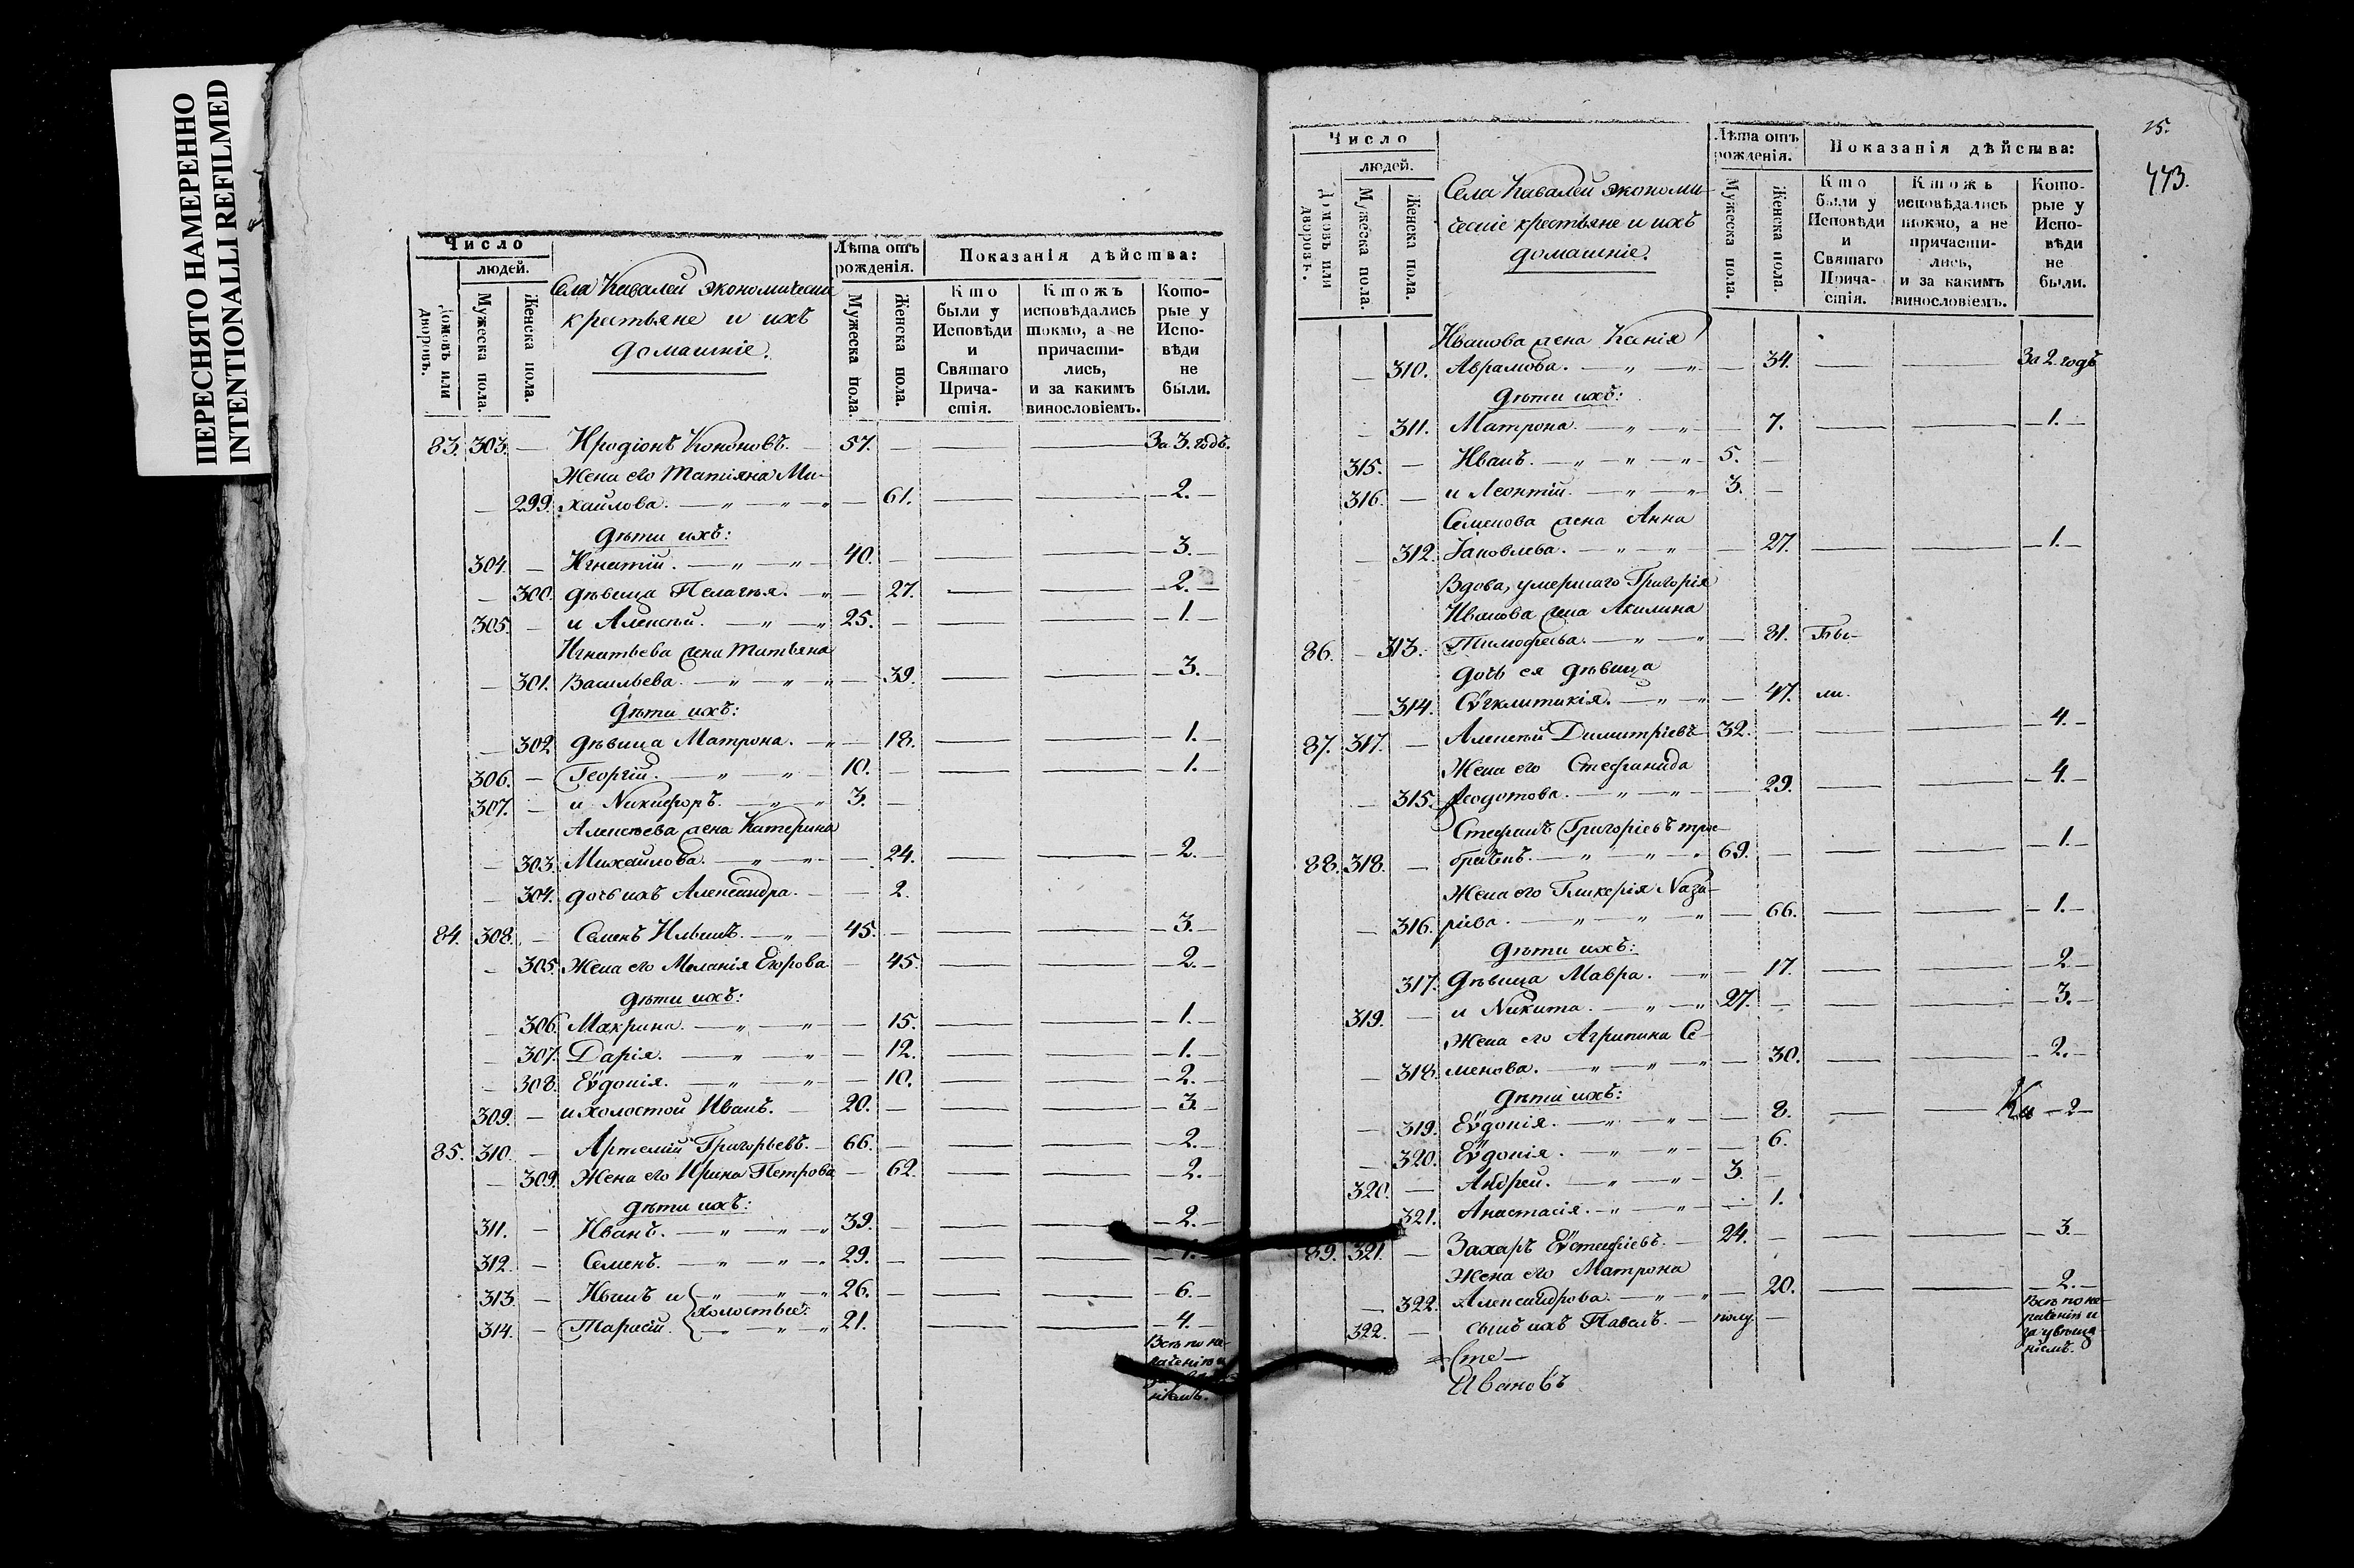 ПЕРЕСНЯТО НАМЕРЕННО
INTENTIONALLI REFILMED
Число
людей.
Домовъ или дворовъ.
Мужеска пола.
Женска пола.
Села Кавалей экономическіе
крестьяне и ихъ
домашніе.
Лѣта отъ рожденія.
Мужеска пола.
Женска пола.
Показанія дѣйства:
Кто были у Исповѣди и Святаго Прича- стія.
Ктожъ исповѣдались токмо, а не причасти- лись, и за какимъ винословіемъ.
Кото- рые у Испо- вѣди не были.
83. 303. — Иродіонъ Кононовъ. — 57. — За 3. годъ.
Жена его Татіяна Ми-
— 299. хайлова. — „ — „ — „ — 61. — — — 2. —
дѣти ихъ:
304. — Игнатій. — „ — „ — 40. — — — — 3. —
— 300. дѣвица Пелагѣя. — „ — 27. — — — 2. —
305. — и Алексѣй. — „ — „ 25. — — — — 1. —
Игнатьева жена Татьяна
— 301. Васильева. — „ — „ — „ — 39. — — — 3. —
дѣти ихъ:
— 302. дѣвица Матрона. — „ — 18. — — — 1. —
306. — Георгій. — „ — „ — 10. — — — — 1. —
307. — и Никифоръ. — „ — „ 3. —
Алексѣева жена Катерина
— 303. Михайлова. — „ — „ — — 24. — — — 2. —
— 304. дочь ихъ Александра. — — 2.
84. 308. — Семенъ Ильинъ. — „ — 45. — — — — 3. —
— 305. Жена его Меланія Егорова — 45. — — — 2. —
дѣти ихъ:
— 306. Макрина. — „ — „ — — 15. — — — 1. —
— 307. Дарія. — „ — „ — — 12. — — — 1. —
— 308. Еѵдокія. — „ — „ — — 10. — — — 2. —
309. — и холостой Иванъ. — 20. — — — — 3. —
85. 310. — Артемій Григорьевъ. — 66. — — — — 2. —
— 309. Жена его Ирина Петрова — 62. — — — 2. —
дѣти ихъ:
311. — Иванъ. — „ — „ — „ 39. — — — — 2. —
312. — Семенъ. — „ — „ — „ 29. — — — — 1. —
313. — Иванъ и { — „ — „ — „ 26. — — — — 6. —
холостые:
314. — Тарасій. { — „ — „ 21. — — — 4. —
Всѣ по не-
раченію и
ніямъ.
25.
443.
Число
людей.
Домовъ или дворовъ.
Мужеска пола.
Женска пола.
Села Кавалей экономи-
ческіе крестьяне и ихъ
домашніе.
Лѣта отъ рожденія.
Мужеска пола.
Женска пола.
Показанія дѣйства:
Кто были у Исповѣди и Святаго Прича- стія.
Ктожъ исповѣдались токмо, а не причасти- лись, и за какимъ винословіемъ.
Кото- рые у Испо- вѣди не были.
Иванова жена Ксенія
— 310. Аврамова. — „ — „ — — 34. — — За 2. годъ
дѣти ихъ:
— 311. Матрона. — „ — „ — 7. — — — 1. —
315. — Иванъ. — „ — „ — „ 5. —
316. — и Леонтій. — „ — „ 3. —
Семенова жена Анна
— 312. Іаковлева. — „ — „ — 27. — — — 1. —
Вдова, умершаго Григорія
Иванова жена Акилина
86. — 313. Тимофеева. — „ — „ — 81. Бы-
дочь ея дѣвица
— 314. Сѵгклитикія. — „ — „ — 47. ли.
87. 317. — Алексѣй Димитріевъ 32. — — — — 4. —
Жена его Стефанида
— 315. Ѳеодотова. — „ — „ — — 29. — — — 4. —
Стефанъ Григорьевъ тро-
88. 318. — 69. — — — — 1. —
Жена его Гликерія Наза-
— 316. ріева. — „ — „ — „ — 66. — — — 1. —
дѣти ихъ:
317. дѣвица Мавра. — „ — 17. — — — 2. —
319. — и Никита. — „ — „ 27. — — — — 3. —
Жена его Агрипина Се-
— 318. менова. — „ — „ — „ — 30. — — — 2. —
дѣти ихъ:
— 319. Еѵдокія. — „ — „ — — 8. — — — 2 —
— 320. Еѵдокія. — „ — „ — — 6.
320. — Андрей. — „ — „ — 3. —
321. Анастасія. — „ — „ — 1.
89. 321. — Захаръ Еѵстафіевъ. — 24. — — — — 3. —
Жена его Матрона
— 322. Александрова. — „ — „ — 20. — — — 2. —
322. — сынъ ихъ Павелъ. — полу. —
Всѣ по не-
раченію и
ніямъ.
Сте-
Ивановъ